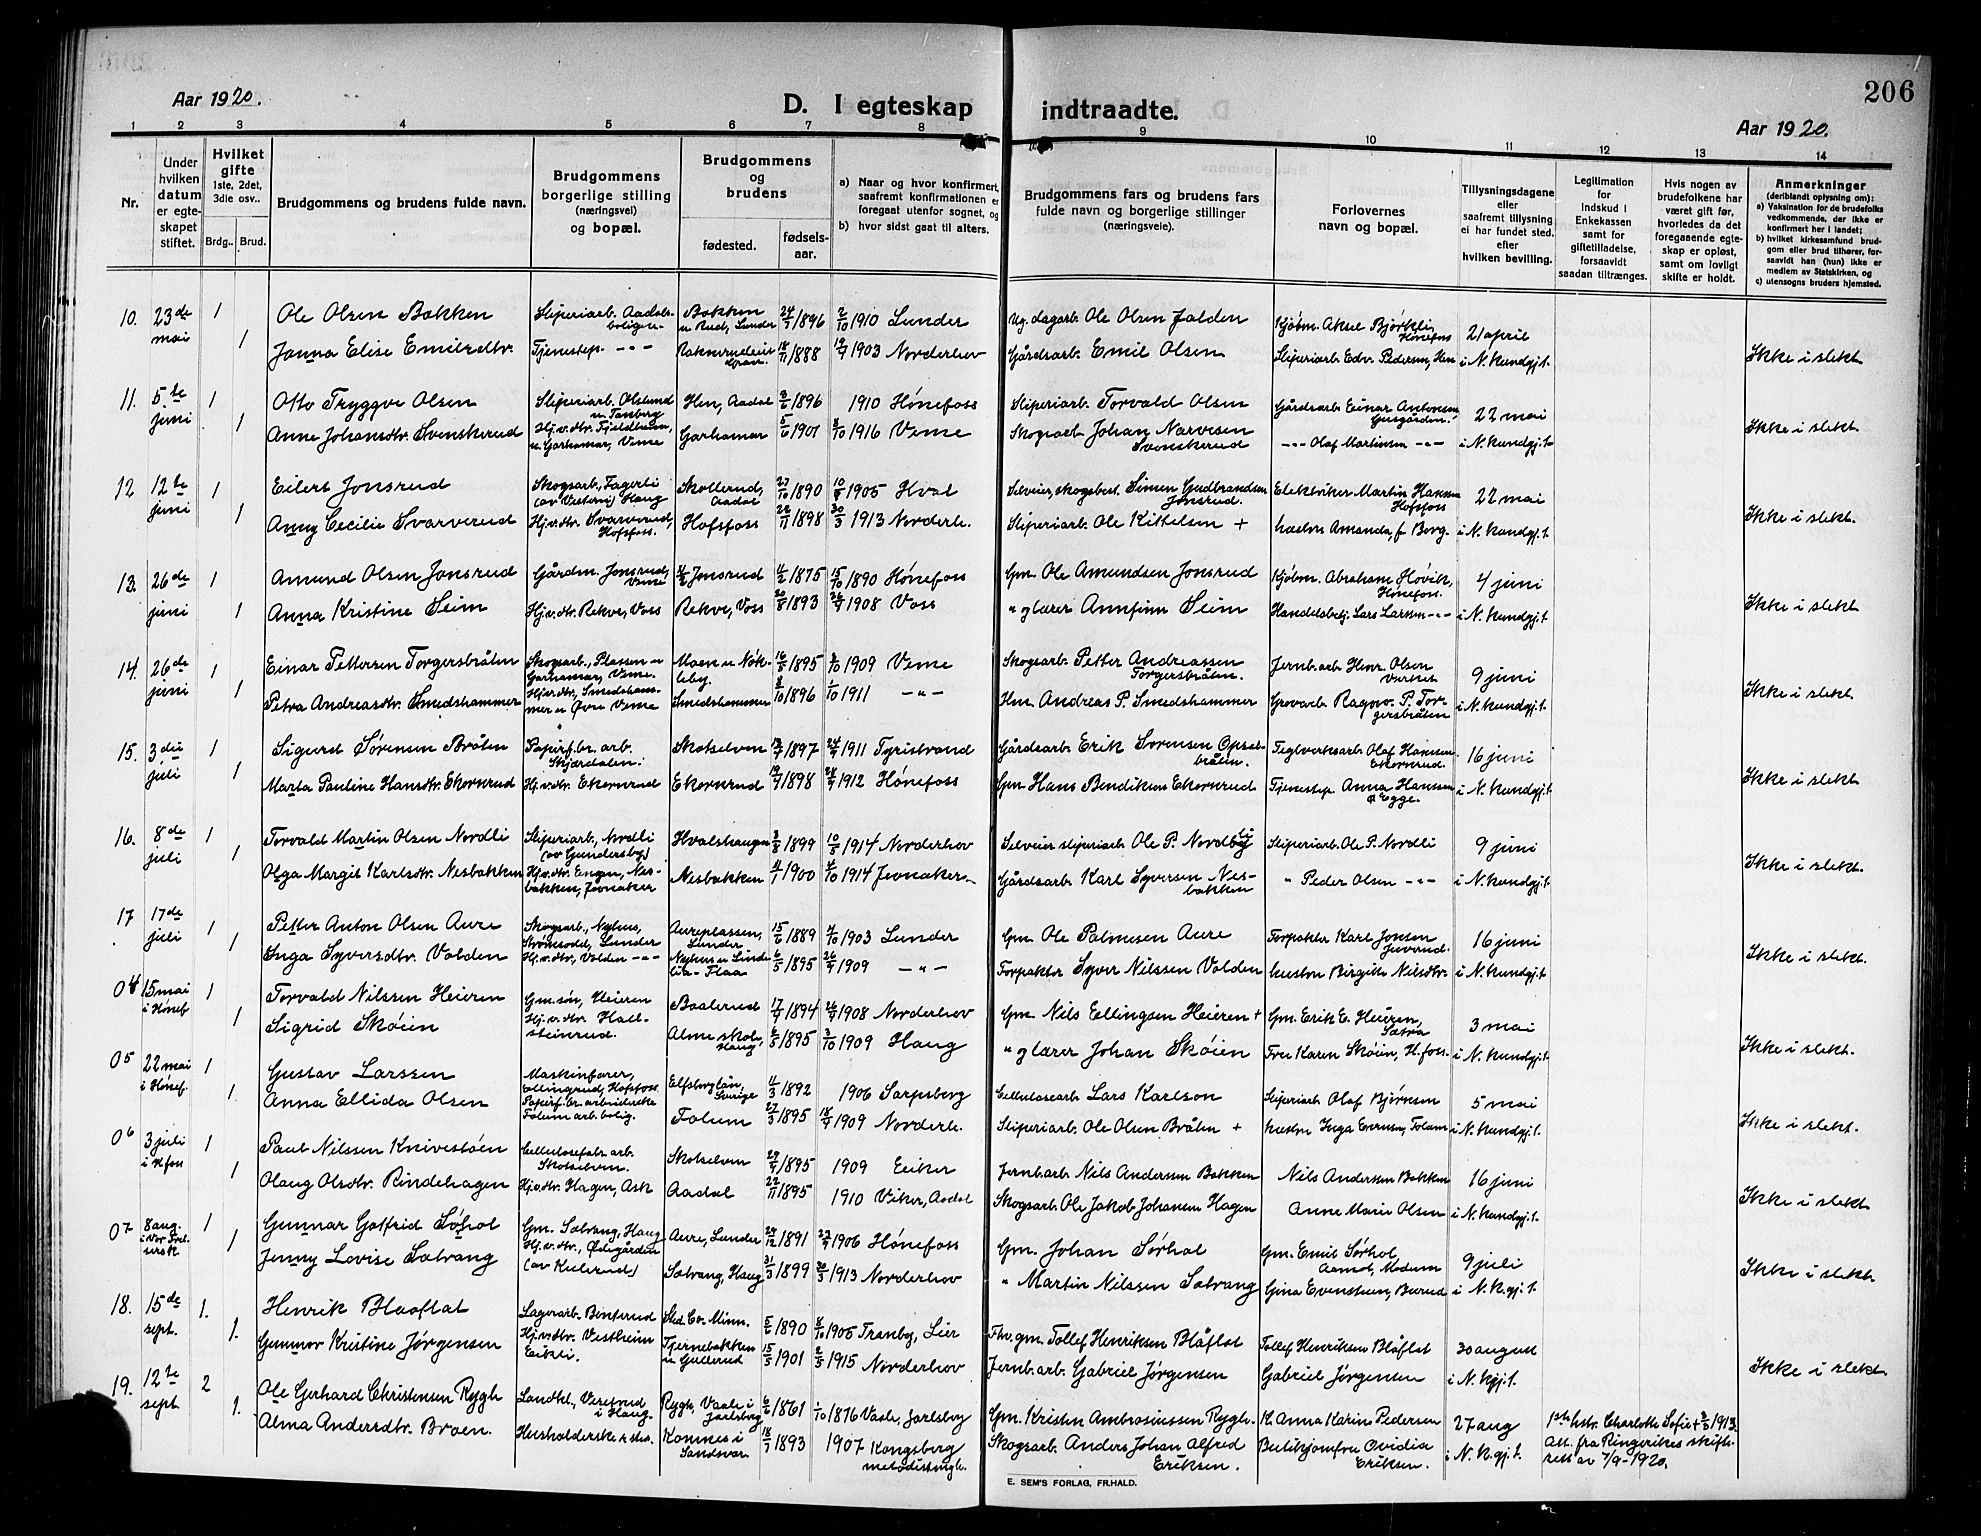 206
Aar 1920.
D. I egteskap indtraadte.
Aar 1920.
1 2 3 4 5 6 7 8 9 10 11 12 13 14
Nr.
Under hvilken datum er egteskapet stiftet.
Hvilket gifte 1ste, 2det, 3die osv..
Brdg.. Brud.
Brudgommens og brudens fulde navn.
Brudgommens borgerlige stilling (næringsvei) og bopæl.
Brudgommens og brudens
fødested. fødselsaar.
a) Naar og hvor konfirmert, saafremt konfirmationen er foregaat utenfor sognet, og
b) hvor sidst gaat til alters.
Brudgommens fars og brudens fars fulde navn og borgerlige stillinger (næringsveie).
Forlovernes navn og bopæl.
Tillysningsdagene eller saafremt tillysning ei har fundet sted, efter hvilken bevilling.
Legitimation for Indskud i Enkekassen samt for giftetilladelse, forsaavidt saadan tiltrænges.
Hvis nogen av brudefolkene har været gift før, hvorledes da det foregaaende egteskap er opløst, samt om lovligt skifte er holdt.
Anmerkninger (deriblandt oplysning om):
a) Vaksination for de brudefolks vedkommende, der ikke er konfirmert her i landet;
b) hvilket kirkesamfund brudgom eller brud tilhører, forsaavidt han (hun) ikke er medlem av Statskirken, og
c) utensogns bruders hjemsted.
10. 23de mai 1 Ole Olsen Bakken Sliperiarb. Aadalsboligen Bakken u. Rud, Lunder 24/7 1896 2/10 1910 Lunder Ug. dagarb. Ole Olsen Jalden Kjøbm. Aksel Bjørkli, Hønefoss 21 april
1 Janna Elise Emilsdtr. Tjenestep. -"- 18/11 1888 19/4 1903 Norderhov Gårdsarb. Emil Olsen Sliperiarb. Edv. Pedersen, Hen i N. kundgj.t. Ikke i slekt
11. 5te juni 1 Otto Tryggve Olsen Sliperiarb. Hen, Aadal 3/6 1896 1910 Hønefoss Sliperiarb. Torvald Olsen Gårdsarb. Einar Antonsen 22 mai
1 Anne Johansdtr. Svenskerud Hj.v.dtr. u. Garhamar, Veme Garhamar 5/6 1901 8/10 1916 Veme Skogsarb. Johan Narvesen Svenskerud -"- Olaf Martinsen -"- i N. kundgj.t. Ikke i slekt
12 12te juni 1 Eilert Jonsrud Skogsarb., Fagerli (av Vestern) Haug Skollerud, Aadal 27/10 1890 10/9 1905 Hval Selveier, skogsbest. Simen Gudbrandsen Jonsrud Elektriker Martin Hansen Hofsfoss 22 mai
1 Anny Cecilie Svarverud Hj.v.dtr. Svarverud, Hofsfoss. Hofsfoss 28/11 1898 30/3 1913 Norderh. Sliperiarb. Ole Kittelsen + hustru Amanda, f. Borg. i N. kundgj.t. Ikke i slekt.
13. 26de juni 1 Amund Olsen Jonsrud Gårdm. Jonsrud, Veme Jonsrud 4/2 1875 15/10 1890 Hønefoss Gm. Ole Amundsen Jonsrud Kjøbm. Abraham Høvik, Hønefoss. 4 juni
1 Anna Kristine Seim Hj.v.dtr. Rekve, Voss Rekve, Voss 20/8 1893 26/4 1908 Voss " og lærer Annfinn Seim Handelsbetj. Lars Larsen -"- i N. kundgj.t. Ikke i slekt
14. 26de juni 1 Einar Pettersen Torgersbråten Skogsarb., Plassen u Garhamar, Veme. Moen u. Nøkleby. 16/5 1895 3/10 1909 Veme Skogsarb. Petter Andreassen Torgersbråten. Jernb.arb. Henr. Olsen Verket 9 juni
1 Petra Andreasdtr. Smedshammer Hj.v.dtr., Smedshammer u Øvre Veme Smedshammer 8/10 1896 1/10 1911 -"- Hm. Andreas P. Smedshammer Grovarb. Ragnv. P. Torgersbråten i N. kundgj.t. Ikke i slekt
15. 3die juli 1 Sigurd Sørensen Bråten Papirf.br. arb. Skjærdalen. Skotselven 13/7 1897 24/9 1911 Tyristrand Gårdsarb. Erik Sørensen Opsalbråten. Teglverksarb. Olaf Hansen Ekornrud. 16 juni
1 Marta Pauline Hansdtr. Ekornrud Hj.v.dtr. Ekornrud Ekornrud 19/9 1898 28/9 1912 Hønefoss Gm. Hans Bendiksen Ekornrud Tjenestep. Anna Hansen Egge. i N. kundgj.t. Ikke i slekt
16. 8de juli 1 Torvald Martin Olsen Nordli Sliperiarb., Nordli (av Gundersby) Hvalshaugen 3/8 1899 10/5 1914 Norderhov Selveier sliperiarb. Ole P. Nordby Sliperiarb. Ole P. Nordli 9 juni
1 Olga Margit Karlsdtr. Nesbakken Hj.v.dtr. Engen, Nesbakken, Jevnaker Nesbakken 4/1 1900 4/10 1914 Jevnaker Gårdsarb. Karl Syversen Nesbakken " Peder Olsen -"- i N. kundgj.t. Ikke i slekt.
17 17de juli 1 Petter Anton Olsen Aure Skogsarb., Nyhus, Strømsodd, Lunder Aureplassen, Lunder 15/6 1889 4/10 1903 Lunder Gm. Ole Palmesen Aure Forpakter Karl Jonsen Juverud. 16 juni
1 Inga Syversdtr. Volden Hj.v.dtr, Volden -"- 6/5 1895 26/9 1909 -"- Forpakter Syver Nilssen Volden hustru Birgitte Nilsdtr. i N. kundgj.t. Ikke i slekt.
04 15 mai i Hønef 1 Torvald Nilssen Heieren Gm. søn, Heieren Baalerud 17/9 1894 26/9 1908 Norderhov Gm. Nils Ellingsen Heieren + Gm. Erik E. Heieren, Sætra 3 mai
1 Sigrid Skøien Hj.v.dtr. Hallsteinrud. Alme skole, Haug 6/5 1895 3/10 1909 Haug " og lærer Johan Skøien Fru Karen Skøien, H.foss. i N. kundgj.t. Ikke i slekt.
05 22 mai i Hønef. 1 Gustav Larssen Maskinfører, Ellingrud, Hofsfoss Elfsborglän, Sverige 4/3 1892 1906 Sarpsborg Cellulosearb. Lars Karlson Sliperiarb Olaf Bjørnsen 5 mai
1 Anna Ellida Olsen Papirf.br. arbeiderske Folum arb. bolig. Folum 27/3 1895 18/4 1909 Norderh. Sliperiarb. Ole Olsen Bråten + hustru Inga Evensen, Folum i N. kundgj.t. Ikke i slekt.
06 3 juli i H.foss 1 Paul Nilssen Knivestøen Cellulosefabr. arb. Skotselven. Skotselven 29/9 1895 1909 Eiker Jernb.arb. Nils Andersen Bakken Nils Andersen Bakken 16 juni
1 Olaug Olsdtr. Rindehagen Hj.v.dtr. Hagen, Ask Aadal 22/11 1895 1910 Viker, Aadal Skogsarb. Ole Jakob Johansen Hagen Anne Marie Olsen i N. kundgj.t. Ikke i slekt
07 8 aug. i Vor Frelsersk. 1 Gunnar Gotfrid Sørhol Gm. Sætrang, Haug Aure, Lunder 24/12 1891 23/9 1906 Hønefoss Gm. Johan Sørhol Gm. Emil Sørhol, Aamot, Modum 9 juli
1 Jenny Lovise Sætrang Hj.v.dtr., Ødegården (av Kielerud) Sætrang, Haug 31/3 1899 30/3 1913 Norderhov " Martin Nilssen Sætrang Gina Evenstuen, Burud i N. k.gj.t. Ikke i slekt
18. 15de sept. 1. Henrik Blaaflat Lagerarb. Benterud Sted Co. Minn. 5/6 1890 8/10 1905 Tranby, Lier Fhv. gm. Tollef Henriksen Blåflat Tollef Henriksen Blåflat 30 august
1. Gunnvor Kristine Jørgensen Hj.v.dtr. Vestheim Eikli. Tjernebakken u Gullerud 15/5 1901 2/5 1915 Norderhov Jernb.arb. Gabriel Jørgensen Gabriel Jørgensen i N. kgj.t. Ikke i slekt
19. 12te sept. 2 Ole Gerhard Christensen Rygh Landhl., Vererud i Haug. Rygh, Vaale i Jarlsberg 6/6 1861 1/10 1876 Vaale, Jarlsberg Gm. Kristen Ambrosiussen Rygh. K. Anna Karin Pedersen 27 aug 1ste hstr. Charlotte Sofie + 3/3 1913.
1. Alma Andersdtr. Broen. Husholderske s. sts. Komnes i Sandsvær 18/7 1893 1907 Kongsberg metodistmgh. Skogsarb. Anders Johan Alfred Eriksen. Butikjomfru Ovidia Eriksen. i N. k.gj.t. Att. fra Ringerikes skifterett av 7/9-1920.
E. SEM'S FORLAG, FR.HALD.